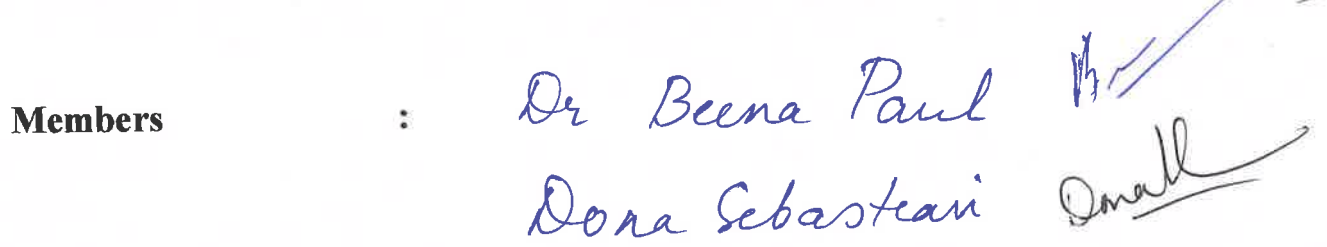 Members : Dr Beena Paul
Dona Sebastian